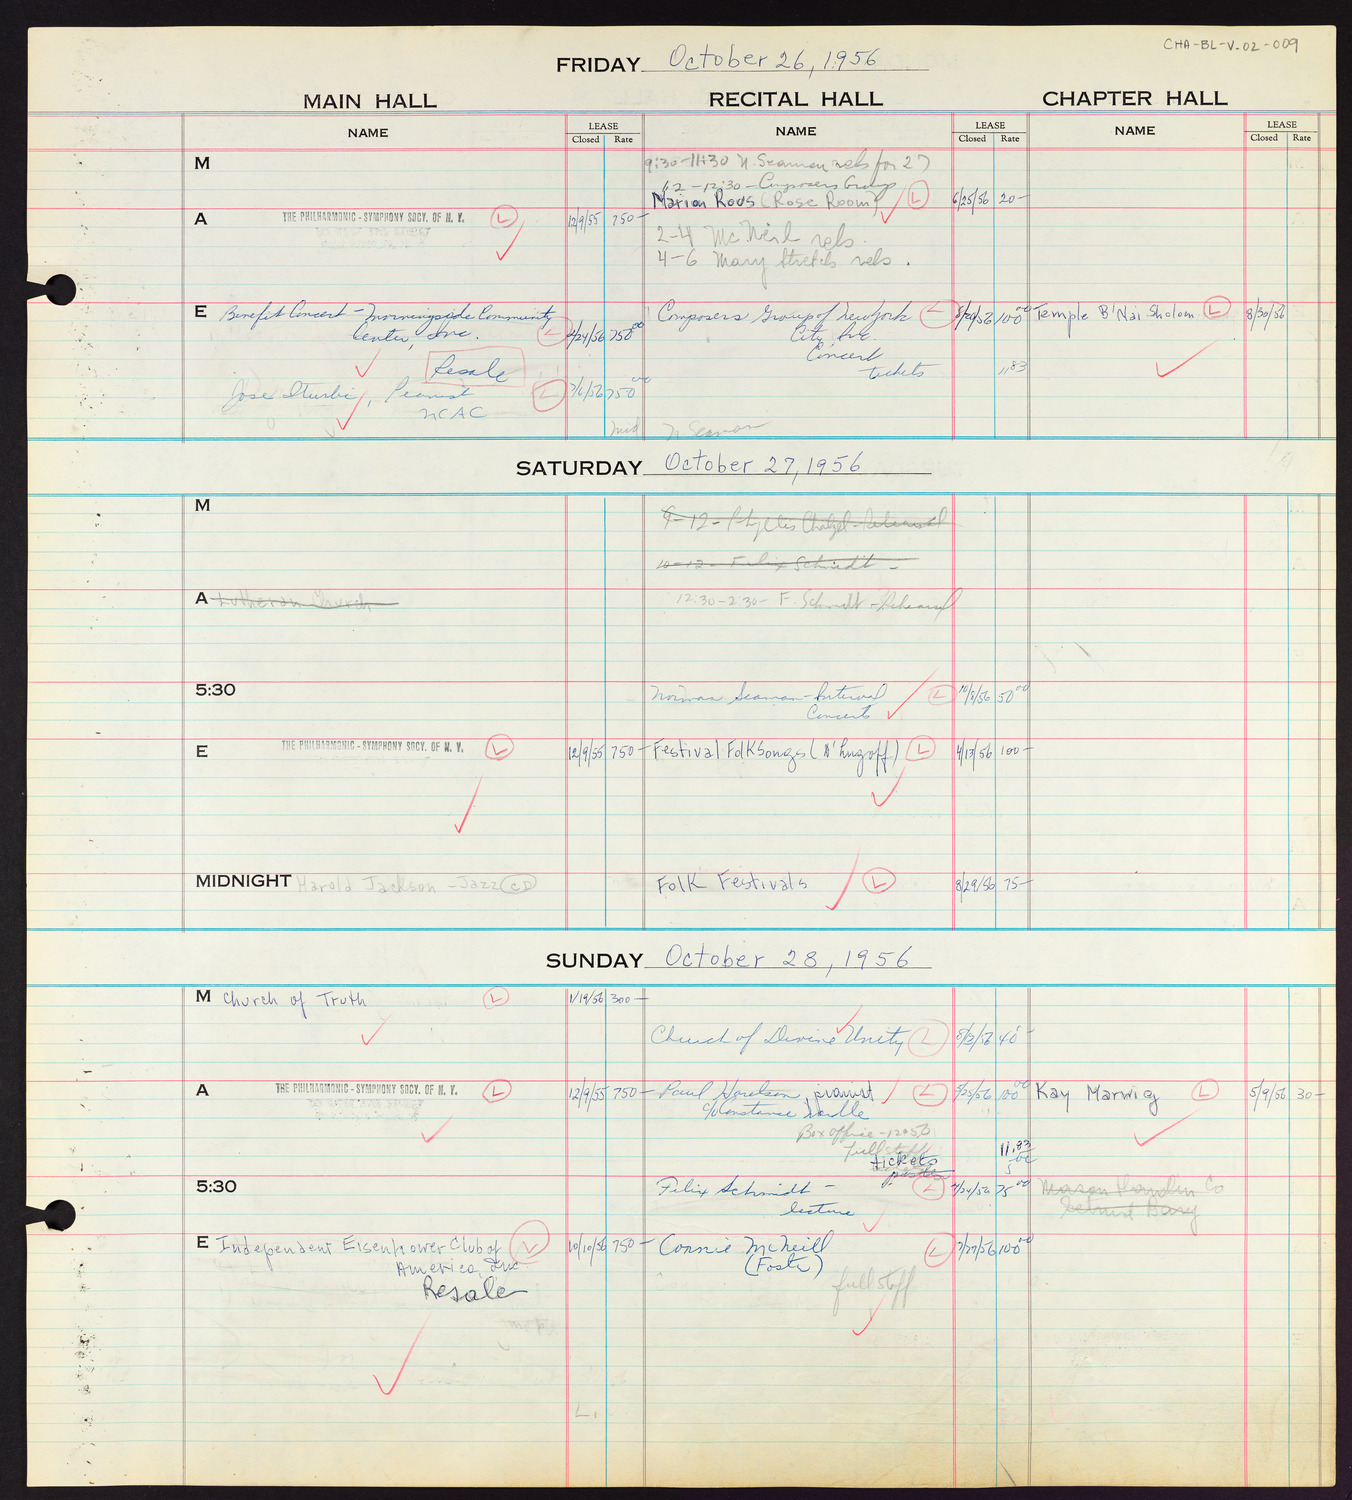 CHA-BL-V.02-009
FRIDAY October 26, 1956
MAIN HALL RECITAL HALL CHAPTER HALL
NAME LEASE Closed Rate NAME LEASE Closed Rate NAME LEASE Closed Rate
M
9:30-11:30 N. Seaman rehs for 27
12-12:30 - Composers Group
Marion Rous (Rose Room) L 6/25/56 20-
A THE PHILHARMONIC-SYMPHONY SOCY. OF N. Y. L 12/9/55 750-
2-4 McNeil rehs.
4-6 Mary Stretch rehs.
E Benefit Concert - Morningside Community
Center, Inc. L 4/24/56 750 00
Resale
Jose Iturbi, Pianist L 7/6/56 750 00
NCAC
Composers Group of New York L 100 00
City, Inc.
Concert
tickets 11.83
Temple B'Nai Sholom L 8/30/56
mid N Seaman
SATURDAY October 27, 1956
M
9-12 - Phyllis Chatzel - Rehearsal
10-12 - Felix Schmidt -
A Lutheran Church
12:30-2:30 - F. Schmidt - Rehearsal
5:30
Norman Seaman - Interval L 10/8/56 50 00
Concerts
E THE PHILHARMONIC-SYMPHONY SOCY. OF N. Y. L 12/9/55 750-
Festival FolkSongs L 4/13/56 100-
MIDNIGHT Harold Jackson - Jazz CD
Folk Festivals L 8/29/56 75-
SUNDAY October 28, 1956
M Church of Truth L 1/19/56 300-
Church of Divine Unity L 5/2/56 40-
A THE PHILHARMONIC-SYMPHONY SOCY. OF N. Y. L 12/9/55 750-
Paul pianist L 5/25/56 100 00
c/o Constance
Box office - 1250
full staff
tickets 11.83
Kay Marwig L 5/9/56 30-
5:30
Felix Schmidt - L 75 00
lecture
Mason Hamlin Co
E Independent Eisenhower Club of L 10/10/56 750-
America, Inc
Resale
Connie McNeill L 7/27/56 100 00
(Foster)
full staff
L.